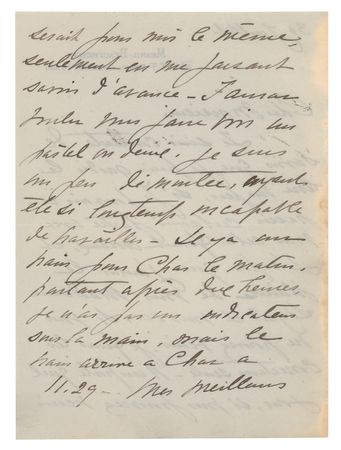 serait pour moi le même,
seulement en me faisant
savoir d'avance - J'aurais
voulu vous faire voir un
pastel en demie. je suis
un peu démontée, ayant
été si longtemps incapable
de travailler - Il y a un
train pour Chars le matin,
partant après dix heures,
je n'ai pas un indicateur
sous la main, mais le
train arrive a Chars a
11.29 - Mes meilleurs